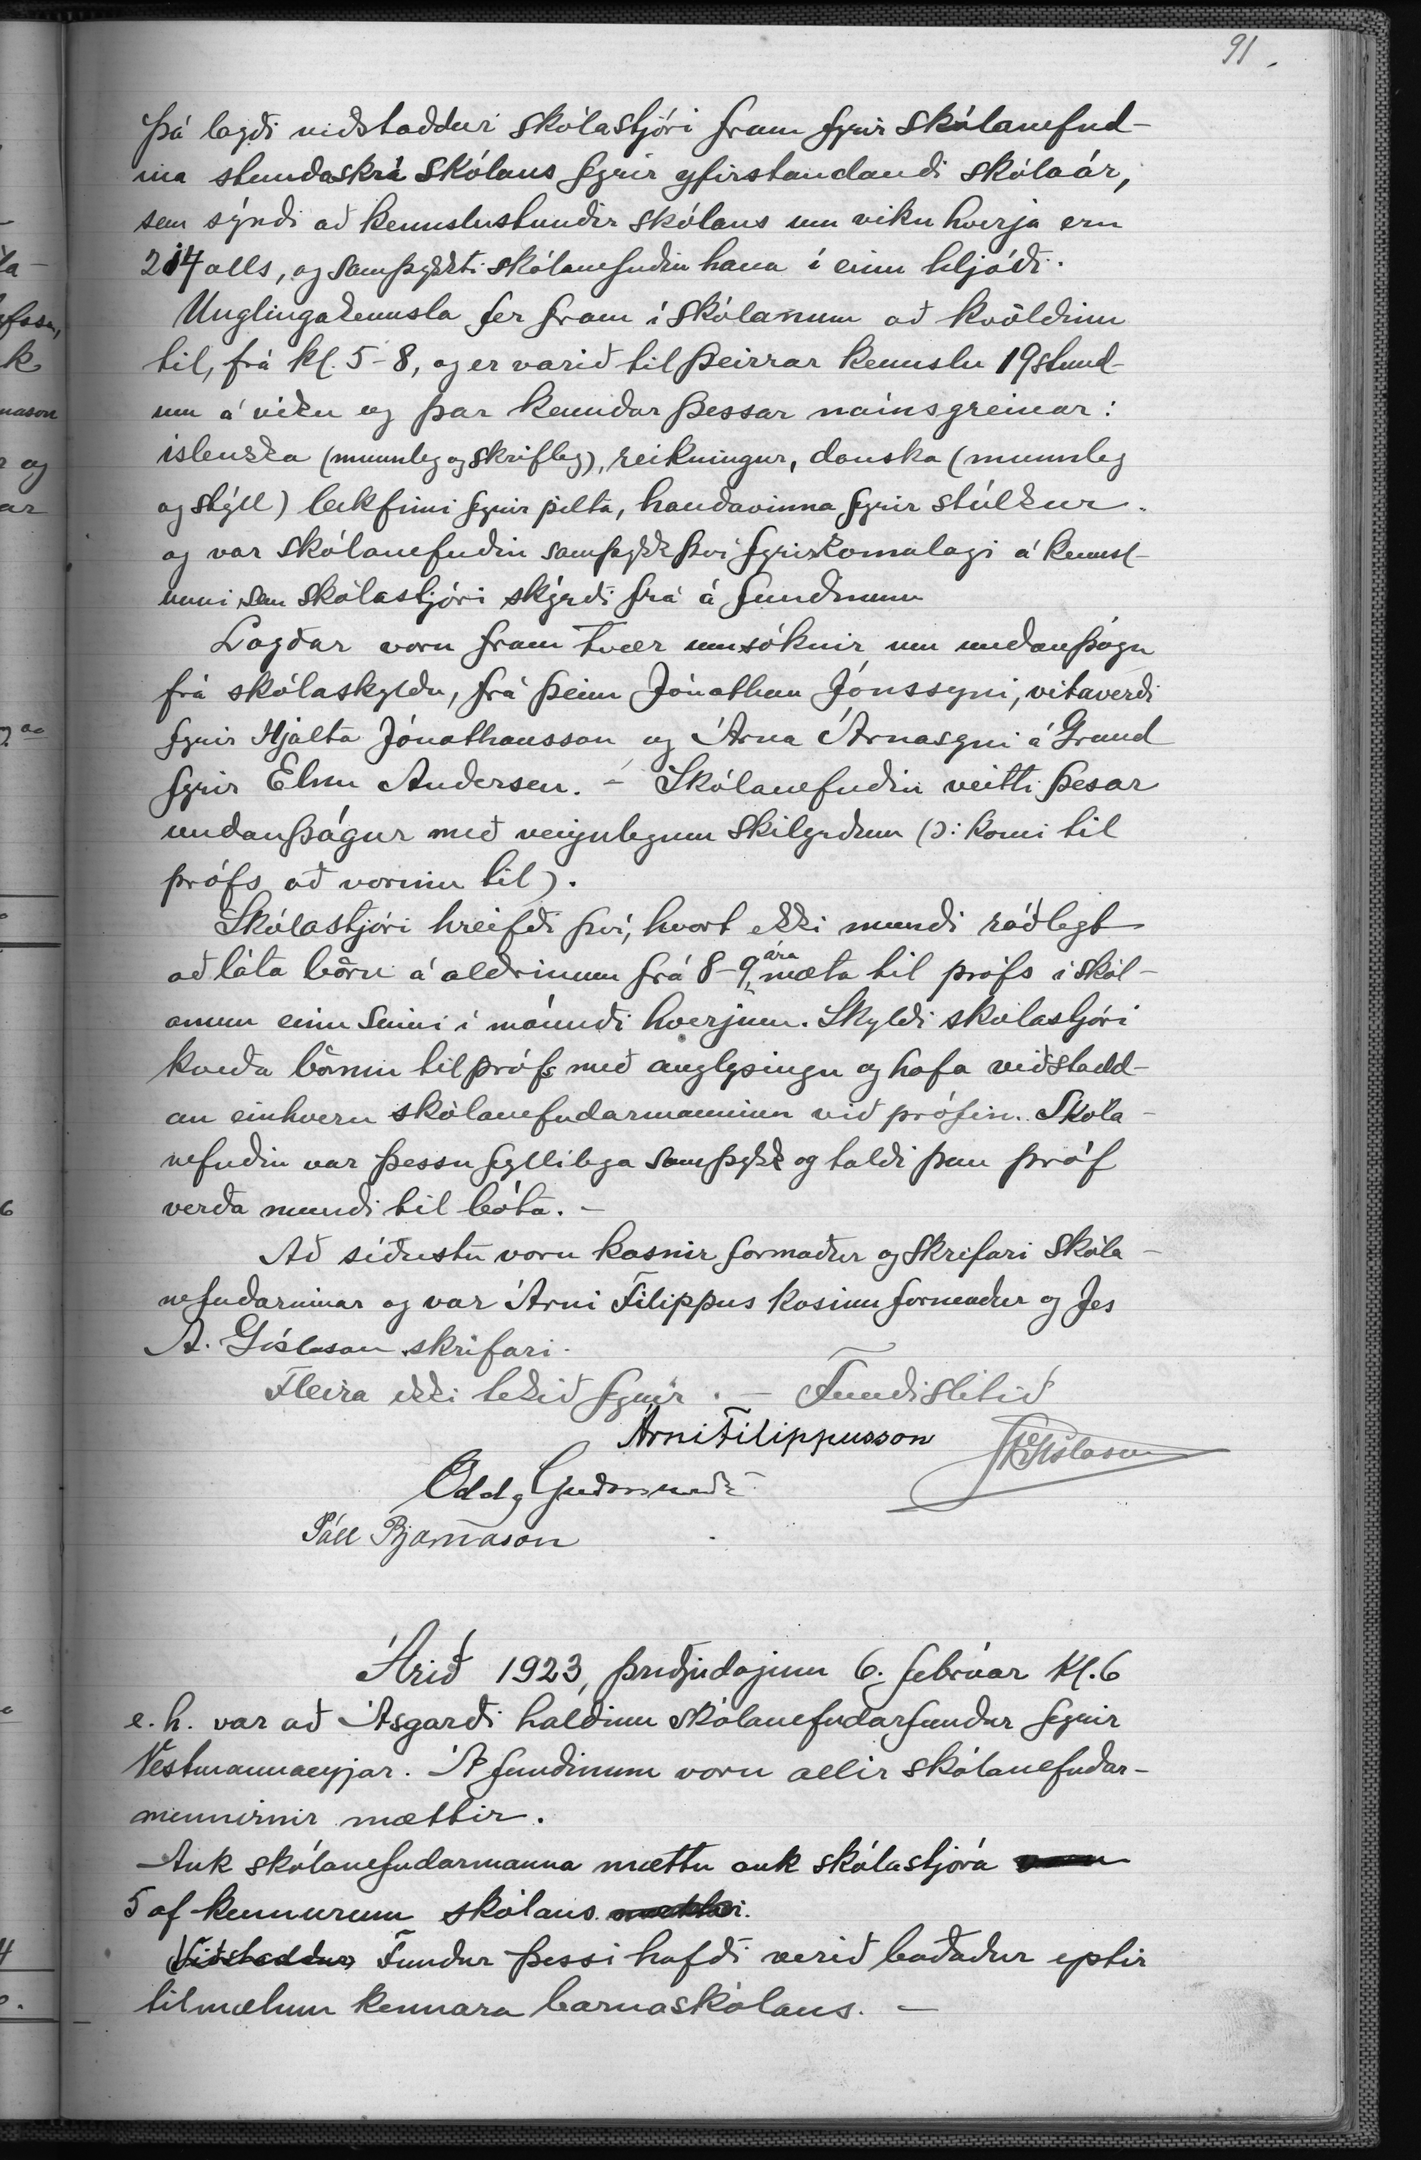 91.
Þá lagði viðstaddur skólastjóri fram fyrir skólanefnd-
ina stundaskrá skólans fyrir yfirstandandi skólaár,
sem sýndi að kennslustundir skólans um viku hverja eru
214 alls, og samþykkti skólanefndin hana í einu hljóði.
Unglingakennsla fer fram í skólanum að kvöldinu
til, frá kl. 5-8, og er varið til þeirrar kennslu 19 stund-
um á viku og þar kenndar þessar námsgreinar:
íslenska (munnleg og skrifleg), reikningur, danska (munnleg
og stýll) leikfimi fyrir pilta, handavinna fyrir stúlkur.
og var skólanefndin samþykk því fyrirkomulagi á kennsl-
unni sem skólastjóri skýrði frá á fundinum
Lagðar voru fram tvær umsóknir um undanþágu
frá skólaskyldu, frá þeim Jónathan Jónssyni, vitaverði
fyrir Hjalta Jónathansson og Árna Árnasyni á Grund
fyrir Elnu Andersen. - Skólanefndin veitti þesar
undanþágur með venjulegum skilyrðum (ɔ: komi til
prófs að vorinu til).
Skólastjóri hreifði því, hvort ekki mundi ráðlegt
að láta börn á aldrinum frá 8-9 ára mæta til prófs í skól-
anum einu sinni í mánuði hverjum. Skyldi skólastjóri
kveða börnin til prófs með auglýsingu og hafa viðstadd-
an einhvern skólanefndarmanninn við prófin. Skóla-
nefndin var þessu fyllilega samþykk og taldi þau próf
verða mundi til bóta. -
Að síðustu voru kosnir formaður og skrifari skóla-
nefndarinnar og var Árni Filippus kosinn formaður og Jes
A. Gíslason skrifari.
Fleira ekki tekið fyrir. - Fundi slitið
Árni Filippusson JesAGíslason
Oddg Guðmunds
Páll Bjarnason
Árið 1923, þriðjudaginn 6. febrúar Kl. 6
e.h. var að Ásgarði haldinn skólanefndarfundur fyrir
Vestmannaeyjar. Á fundinum voru allir skólanefndar-
mennirnir mættir.
Auk skólanefndarmanna mættu auk skólastjóra voru
5 af kennurum skólans mættir.
Viðstaddur Fundur þessi hafði verið boðaður eptir
tilmælum kennara barnaskólans. -